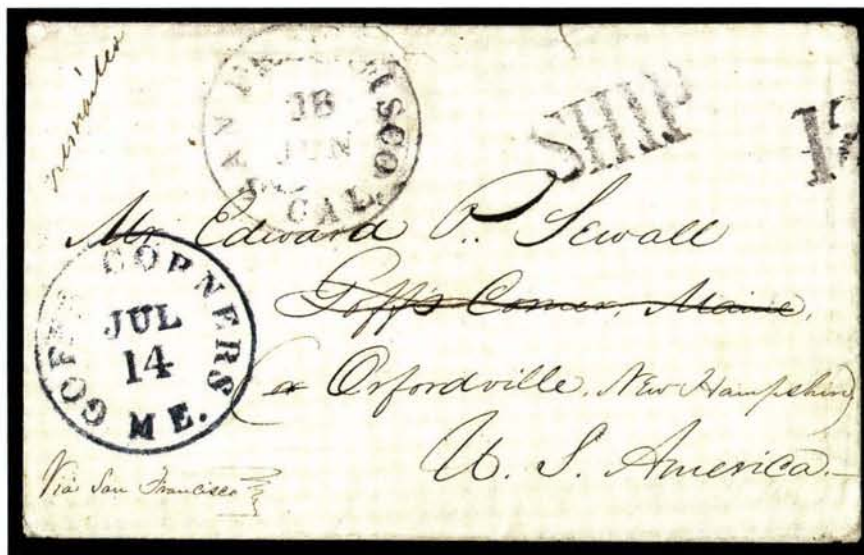 SAN FRANCISCO CAL.
18
JUN
SHIP
Mr Edward P. Sewall
Goff's Corner, Maine,
(or Orfordville, New Hampshire)
U. S. America.
GOFFS CORNERS ME.
JUL
14
Via San Francisco